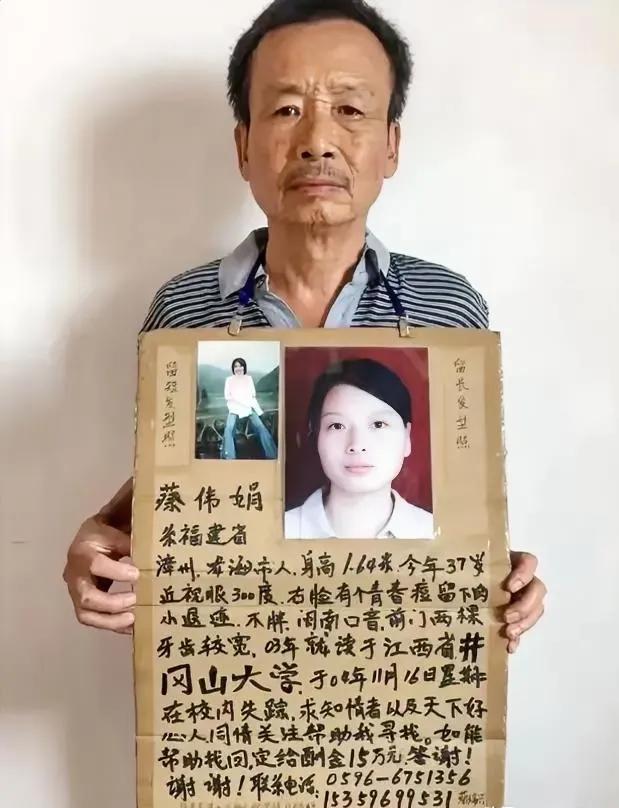 留短发型照
留长发型照
蔡伟娟
系福建省
漳州.龙海市人.身高1.64米.今年37岁
近视眼300度.右脸有个青春痘留下的
小退迹.不胖.闽南口音.前门两棵
牙齿较宽.03年就读于江西省井
冈山大学.于04年11月16日星期二
在校内失踪.求知情者以及天下好
心人同情关注帮助我寻找。如能
帮助找回定给酬金15万元.答谢!
谢谢!联系电话:0596-6751356
15359699531